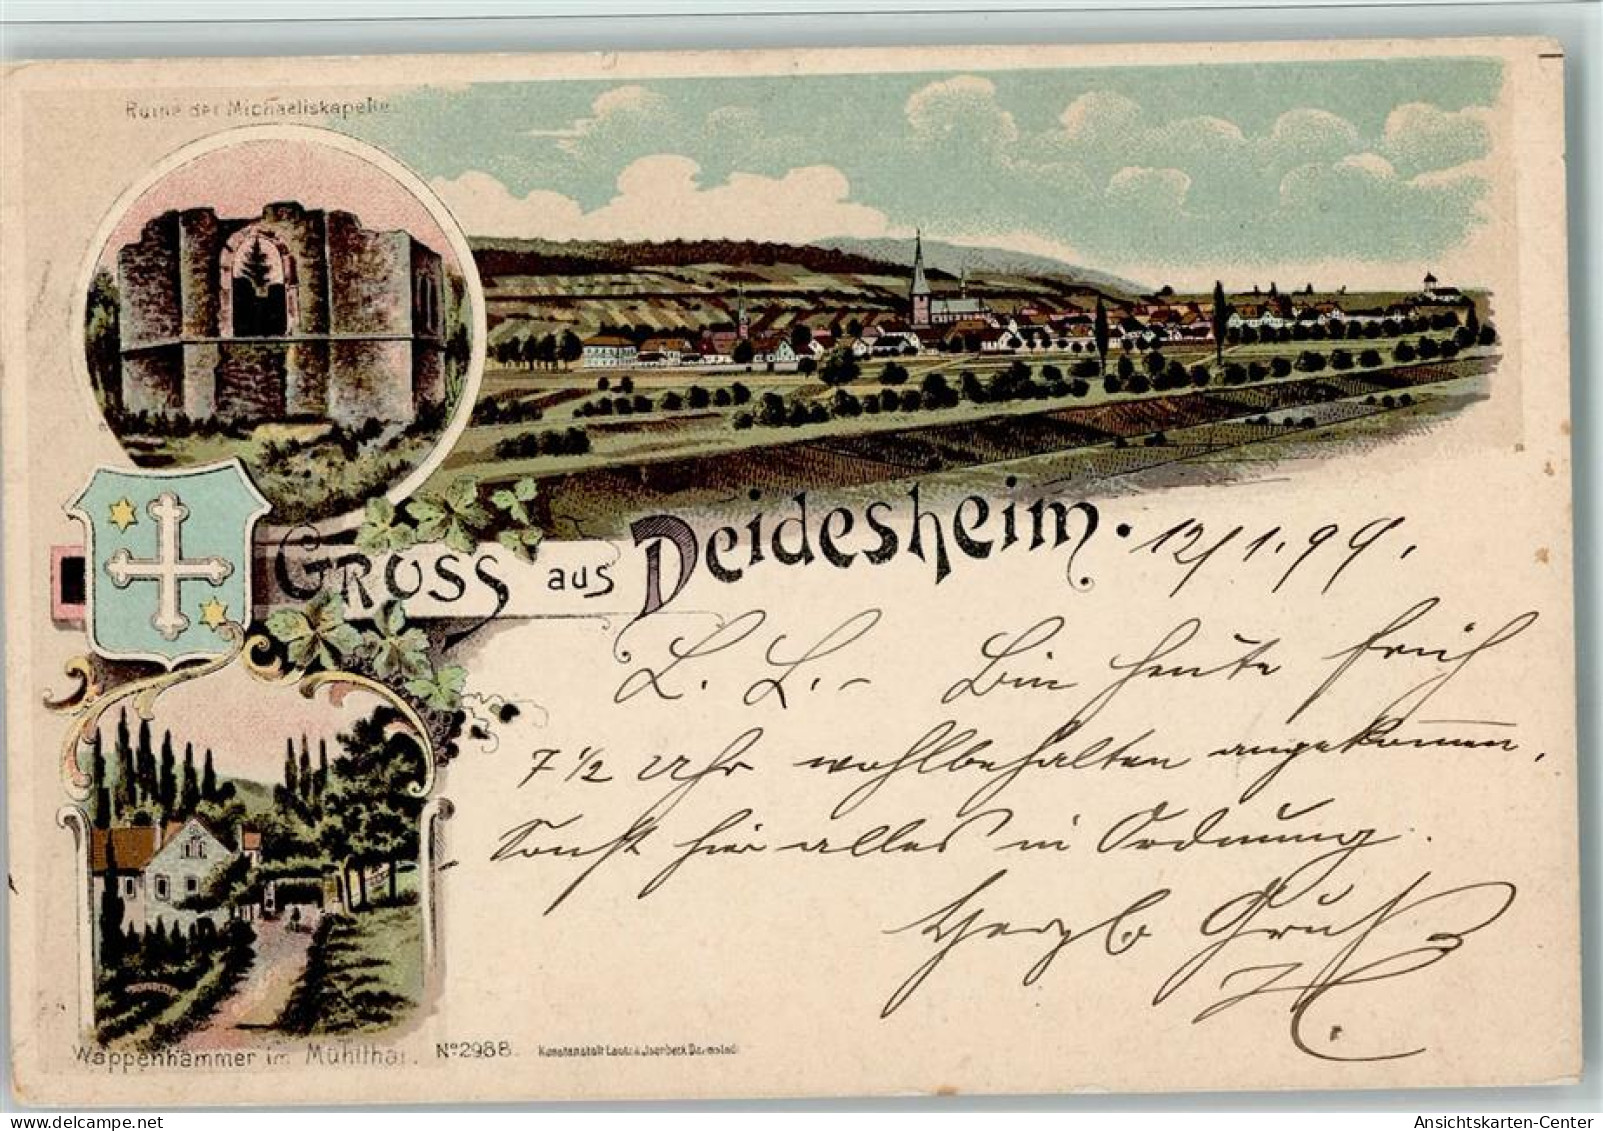 Ruine der Michaeliskapelle.
GRUSS aus Deidesheim. 12/1.99.
L. L. – Bin heute früh
7 1/2 Uhr wohlbehalten angekommen.
Sonst hier alles in Ordnung.
Herzl. Gruß
Wappenhammer im Mühlthal. No 2988. Kunstanstalt Lautz & Jsenbeck Darmstadt
Ansichtskarten-Center